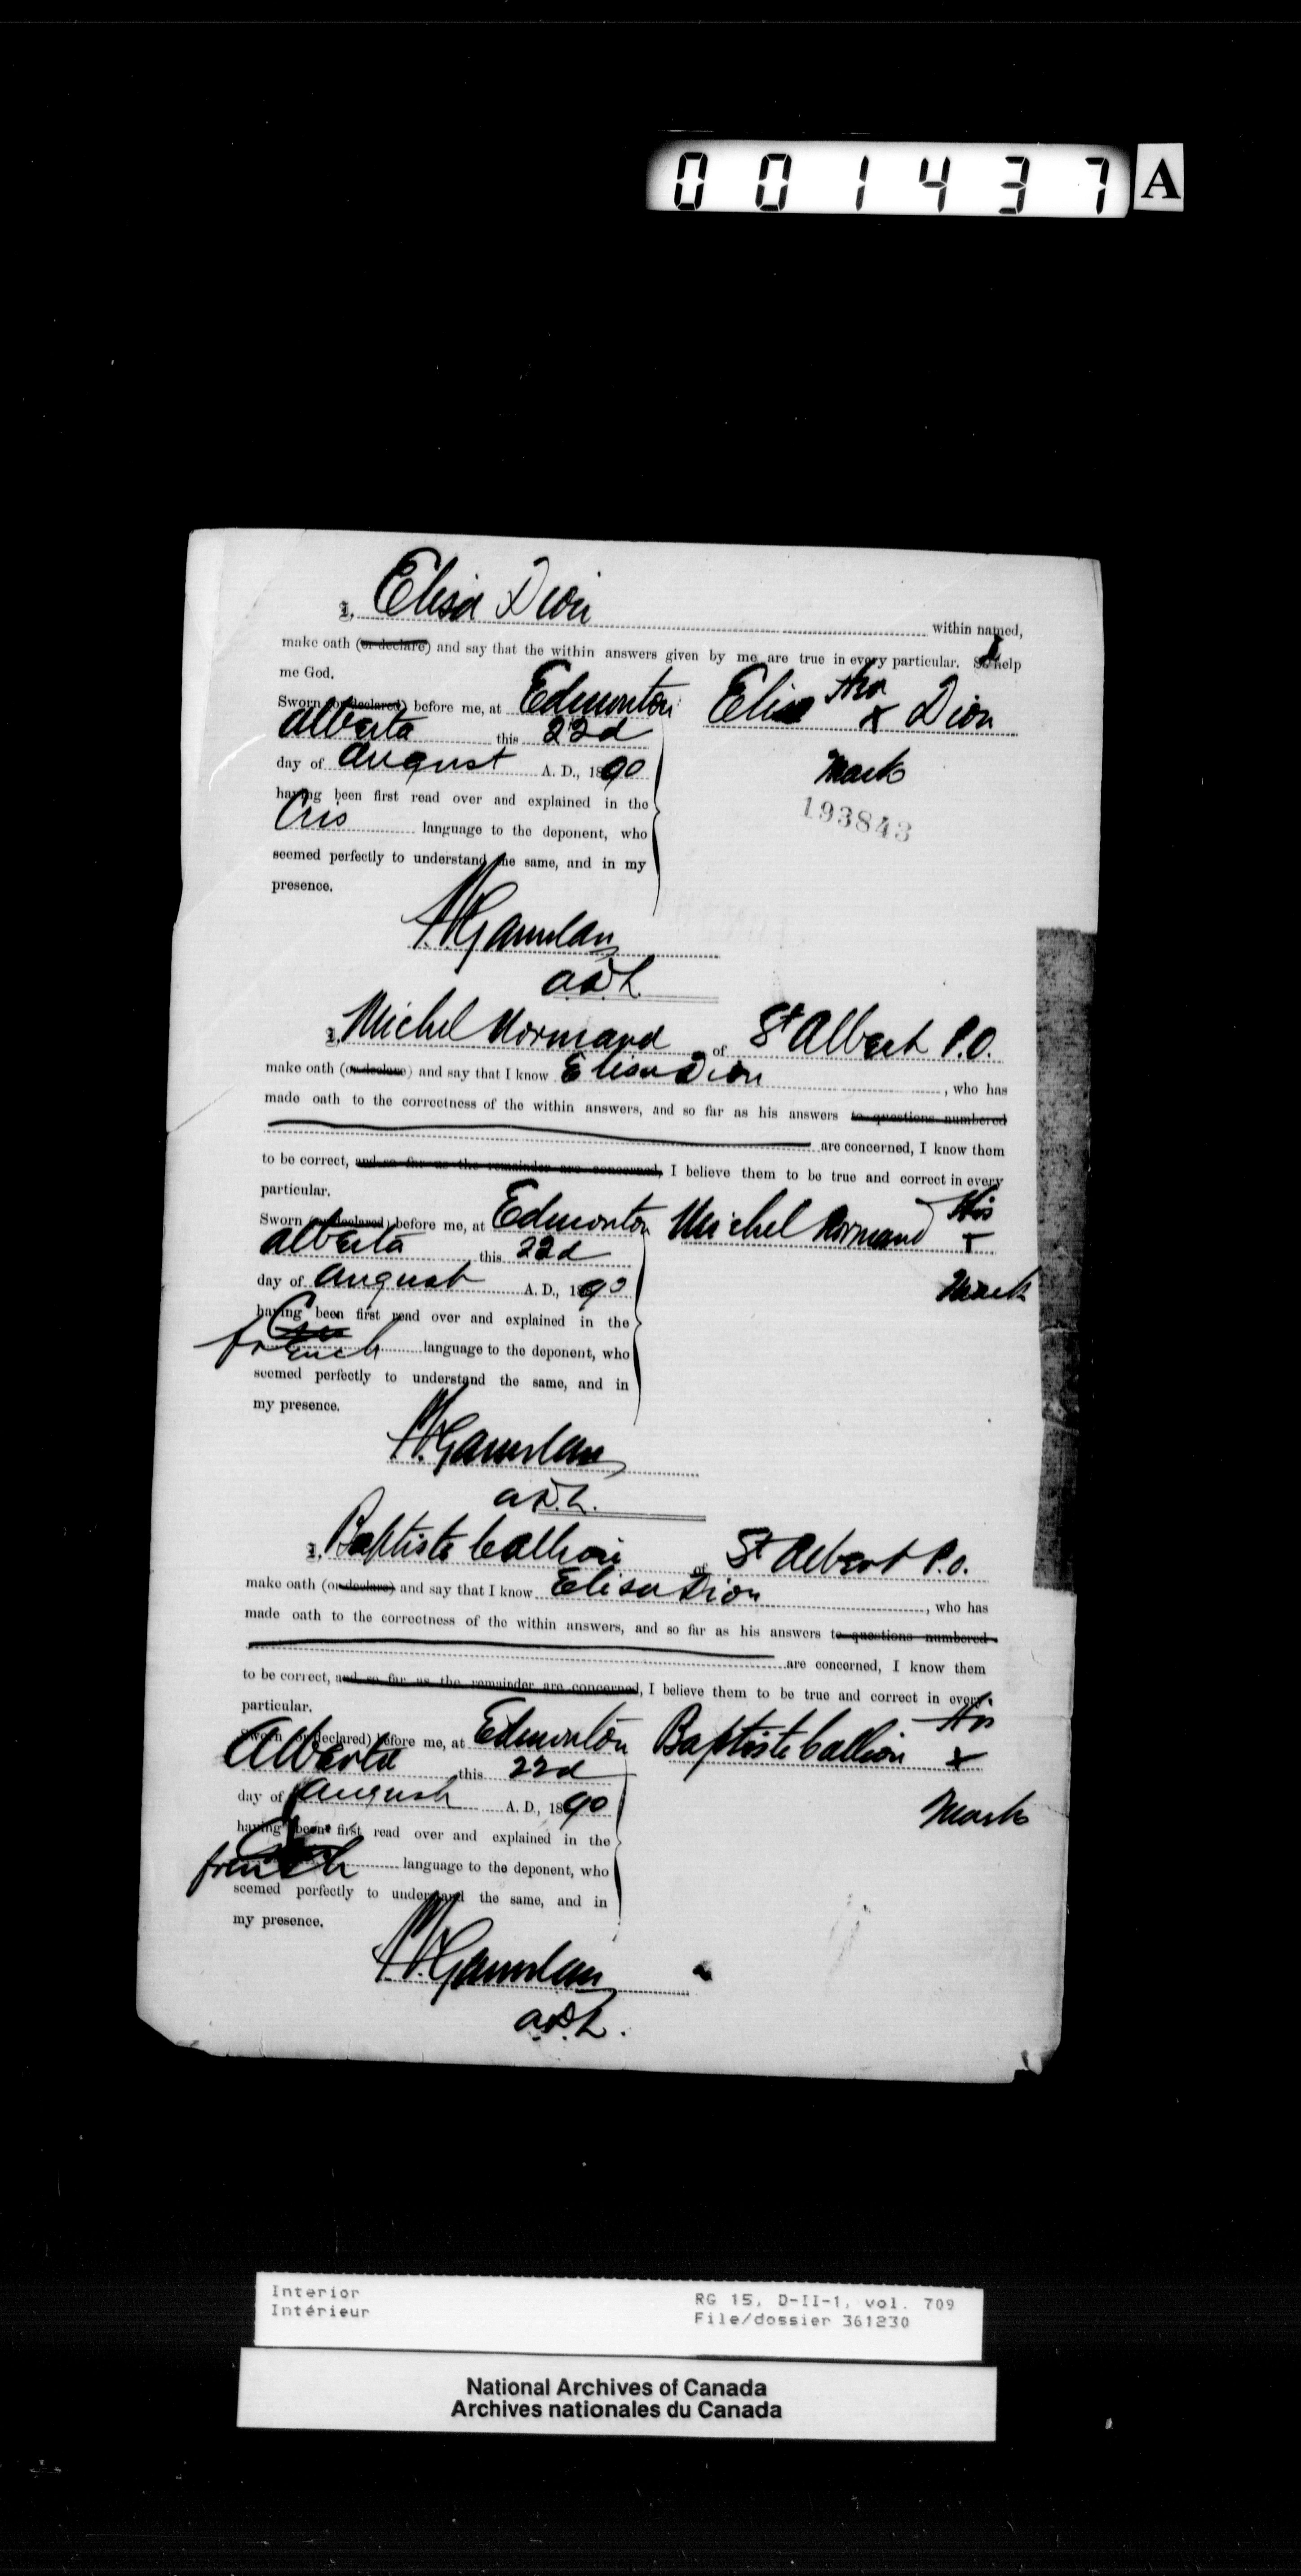 001437 A
I, Elisa Dion within named,
make oath (or declare) and say that the within answers given by me are true in every particular. So help
me God.
Sworn (or declared) before me, at Edmonton
Alberta this 22d
day of August A. D., 1890
having been first read over and explained in the
Cris language to the deponent, who
seemed perfectly to understand the same, and in my
presence.
Elisa her x Dion
Mark
193843
A.D.L.
I, Michel Normand of St Albert P.O.
make oath (or declare) and say that I know Elisa Dion, who has
made oath to the correctness of the within answers, and so far as his answers to questions numbered
are concerned, I know them
to be correct, and so far as the remainder are concerned, I believe them to be true and correct in every
particular.
Sworn (or declared) before me, at Edmonton
Alberta this 22d
day of August A. D., 1890
having been first read over and explained in the
french language to the deponent, who
seemed perfectly to understand the same, and in
my presence.
Michel Normand His
x
Mark
A.D.L.
I, Baptiste Callion of St Albert P.O.
make oath (or declare) and say that I know Elisa Dion, who has
made oath to the correctness of the within answers, and so far as his answers to questions numbered
are concerned, I know them
to be correct, and so far as the remainder are concerned, I believe them to be true and correct in every
particular.
Sworn (or declared) before me, at Edmonton
Alberta this 22d
day of August A. D., 1890
having been first read over and explained in the
french language to the deponent, who
seemed perfectly to understand the same, and in
my presence.
Baptiste Callion His
x
Mark
A.D.L.
Interior
Intérieur
RG 15, D-II-1, vol. 709
File/dossier 361230
National Archives of Canada
Archives nationales du Canada